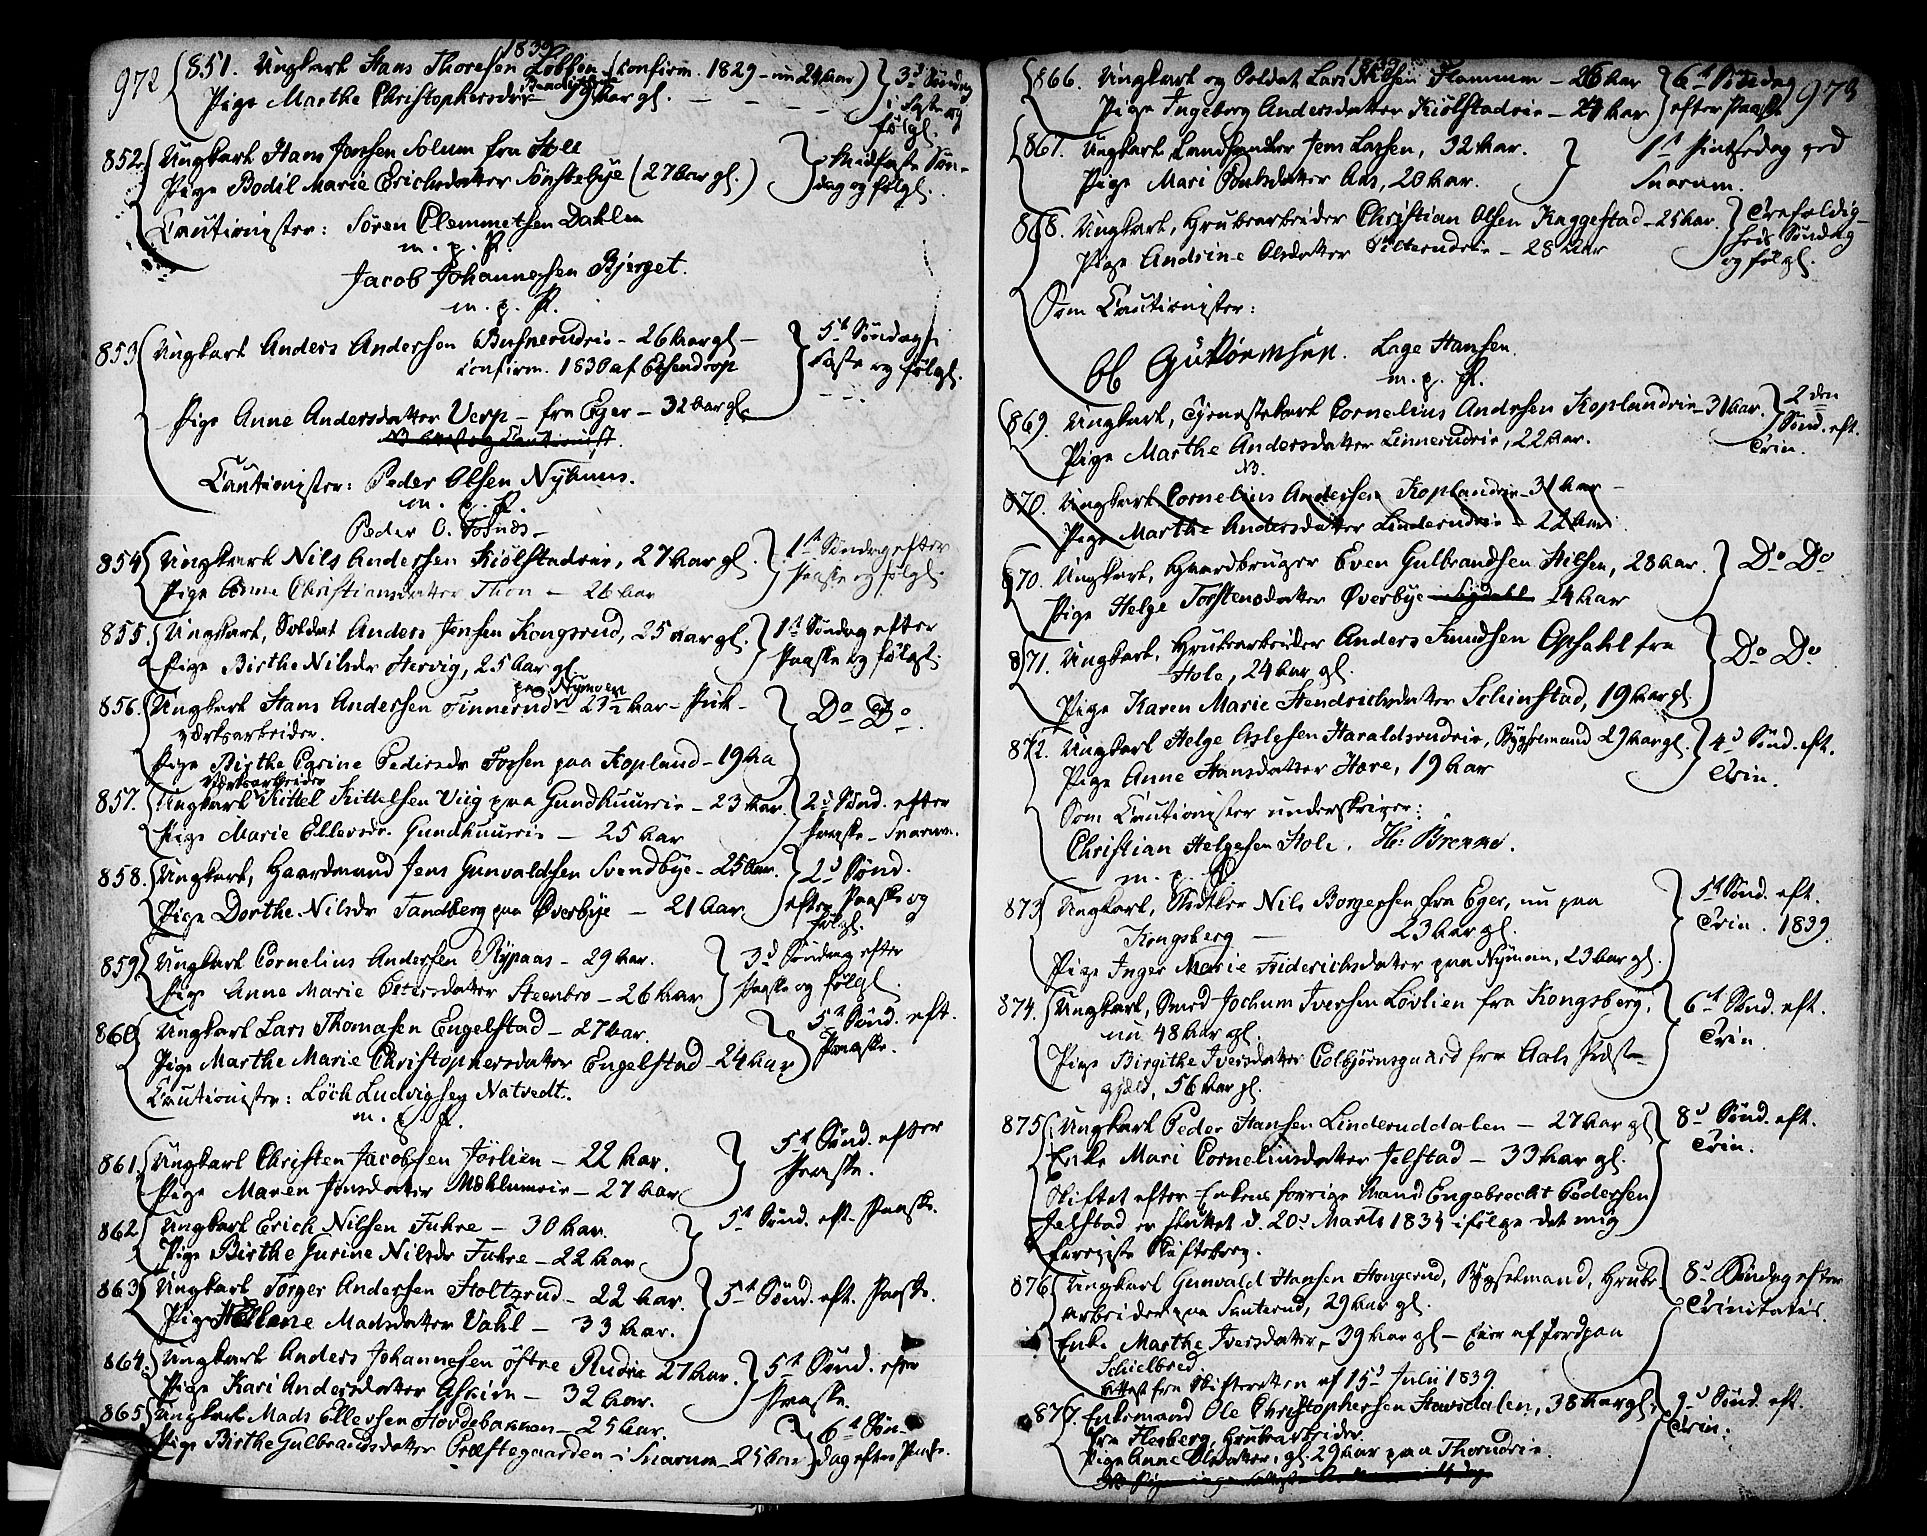 1839
972
851. Ungkarl Hans Thoresen Løbben (confirm. 1829 - nu 24 Aar) 3d Søndag
Pige Marthe Christophersdr 19 Aar gl. i Faste og
følgl.
852. Ungkarl Hans Jonsen Solum fra Hole Midfaste Søn-
Pige Bodil Marie Erichsdatter Sønstebye (27 Aar gl.) dag og følgl.
Cautionister: Søren Clemmetsen Dahlen
m. p. P.
Jacob Johannesen Bjerget.
m. p. P.
853 Ungkarl Anders Andersen Busnerudeie - 26 Aar gl - 5te Søndag i
confirm. 1830 af Essendrop Faste og følgl.
Pige Anne Andersdatter Verp - fra Eger - 32 Aar gl.
Cautionister: Peder Olsen Nyhuus.
m. p. P.
Peder O. Fosnds
854 Ungkarl Nils Andersen Kiølstadeie, 27 Aar gl. 1ste Søndag efter
Pige Anne Christiansdatter Thon - 26 Aar Paaske og følgl.
855. Ungkarl, Soldat Anders Jensen Kongsrud, 25 Aar gl. 1ste Søndag efter
Pige Birthe Nilsdr Hervig, 25 Aar gl. Paaske og følgl.
paa Nymoen
856. Ungkarl Hans Andersen Finnerud 27½ Aar - Puk- Do Do.
værksarbeider.
Pige Birthe Carine Pedersdr Fossen paa Kopland - 19 Aa
Værksarbeider
857. Ungkarl Kittel Kittelsen Viig paa Gundhuuseie - 23 Aar. 2d Sønd. efter
Pige Marie Ellevsdr. Gundhuuseie - 25 Aar Paaske - Snarum.
858. Ungkarl, Gaardmand Jens Gunvaldsen Svendbye - 25 Aar. 2d Sønd.
Pige Dorthe Nilsdr Tandberg paa Øverbye - 21 Aar efter Paaske og
følgl.
859 Ungkarl Cornelius Andersen Rypaas - 29 Aar. 3d Søndag efter
Pige Anne Marie Pedersdatter Steenbro - 26 Aar Paaske og følgl.
860 Ungkarl Lars Thomasen Engelstad - 27 Aar. 5te Sønd. eft.
Pige Marthe Marie Christophersdatter Engelstad - 24 Aar Paaske.
Cautionister: Löch Ludvigsen Natvedt.
m. p. P.
861. Ungkarl Christen Jacobsen Jørlien - 22 Aar. 5te Sønd. efter
Pige Maren Jonsdatter Mæhlumeie - 27 Aar Paaske.
862. Ungkarl Erich Nilsen Fuhre - 30 Aar. 5te Sønd. eft. Paaske.
Pige Birthe Gurine Nilsdr Fuhre - 22 Aar
863 Ungkarl Torger Andersen Holtzrud - 22 Aar. 5te Sønd. eft. Paaske.
Pige Hellene Madsdatter Vahl - 33 Aar.
864. Ungkarl Anders Johannesen østre Rudeie 27 Aar. 5te Sønd. efter
Pige Kari Andersdatter Askim - 32 Aar. Paaske.
865 Ungkarl Mads Ellefsen Hovdebakken - 25 Aar. 6te Søn-
Pige Birthe Gulbrandsdatter Præstegaarden i Snarum - 25 Aar dag efter Paaske.
1839
973
866. Ungkarl og Soldat Lars Nilsen Flammen - 26 Aar 6te Søndag
Pige Ingeborg Andersdatter Kiølstadeie - 24 Aar efter Paaske
867. Ungkarl, Landhandler Jens Lassen, 32 Aar. 1ste Pintsedag ved
Pige Mari Poulsdatter Aas, 20 Aar. Snarum.
868. Ungkarl, Grubearbeider Christian Olsen Kaggestad - 25 Aar. Trefoldig-
Pige Andrine Olsdatter - 28 Aar heds Søndag
og følgl.
Som Cautionister:
Ol Guttormsen. Lage Hansen.
m. p. P.
869. Ungkarl, Tjenestekarl Cornelius Andersen Koplandeie - 31 Aar. 2den
Pige Marthe Andersdatter Linnerudeie, 22 Aar. Sønd. eft.
Trin.
870. Ungkarl Cornelius Andersen Koplandeie - 31 Aar -
Pige Marthe Andersdatter Linderudeie - 22 Aar
870. Ungkarl, Gaardbruger Even Gulbrandsen Nilsen, 28 Aar. Do Do
Pige Helge Torstensdatter Øverbye Sigdahl 24 Aar
871. Ungkarl, Grubearbeider Anders Knudsen Opsahl fra Do Do
Hole, 24 Aar gl.
Pige Karen Marie Hendrichsdatter Schinstad, 19 Aar gl.
872. Ungkarl Helge Aslesen Haraldsrudeie, Bygselmand 29 Aar gl. 4d Sønd. eft.
Pige Anne Hansdatter Hære, 19 Aar Trin.
Som Cautionister underskriver:
Christian Helgesen Hole. H: Brenne.
m. p. P.
873 Ungkarl, Nils Borgersen fra Eger, nu paa 5te Sønd. eft.
Kongsberg - 23 Aar gl. Trin. 1839.
Pige Inger Marie Friderichsdatter paa Nymoen, 23 Aar gl.
874. Ungkarl, Smed Jochum Iversen Løvlien fra Kongsberg, 6te Sønd. eft.
nu 48 Aar gl. Trin.
Pige Birgithe Iversdatter Colbjørnsgaard fra Aals Præste-
gjæld, 56 Aar gl.
875 Ungkarl Peder Hansen Linderuddalen - 27 Aar gl 8d Sønd. eft.
Enke Mari Corneliusdatter Jelstad - 33 Aar gl. Trin.
Skiftet efter Enkens forrige Mand Engebrecht Pedersen
Jelstad er sluttet d. 20d Marts 1834 ifølge det mig
foreviste Skiftebrev.
876 Ungkarl Gunvald Hansen Hongerud, Bygselmand, Grube- 8de Søndag efter
arbeider paa Santerud, 29 Aar gl. Trinitatis.
Enke Marthe Iversdatter, 39 Aar gl - Eier af Jord paa
Schielbred
Attest fra Skifteretten af 15d Julii 1839.
877. Enkemand Ole Christophersen Havsdalen, 38 Aar gl. 9d Sønd. eft.
fra Flesberg, Grubearbeider. Trin.
Pige Anne Olsdatter, gl. 29 Aar paa Thorudeie